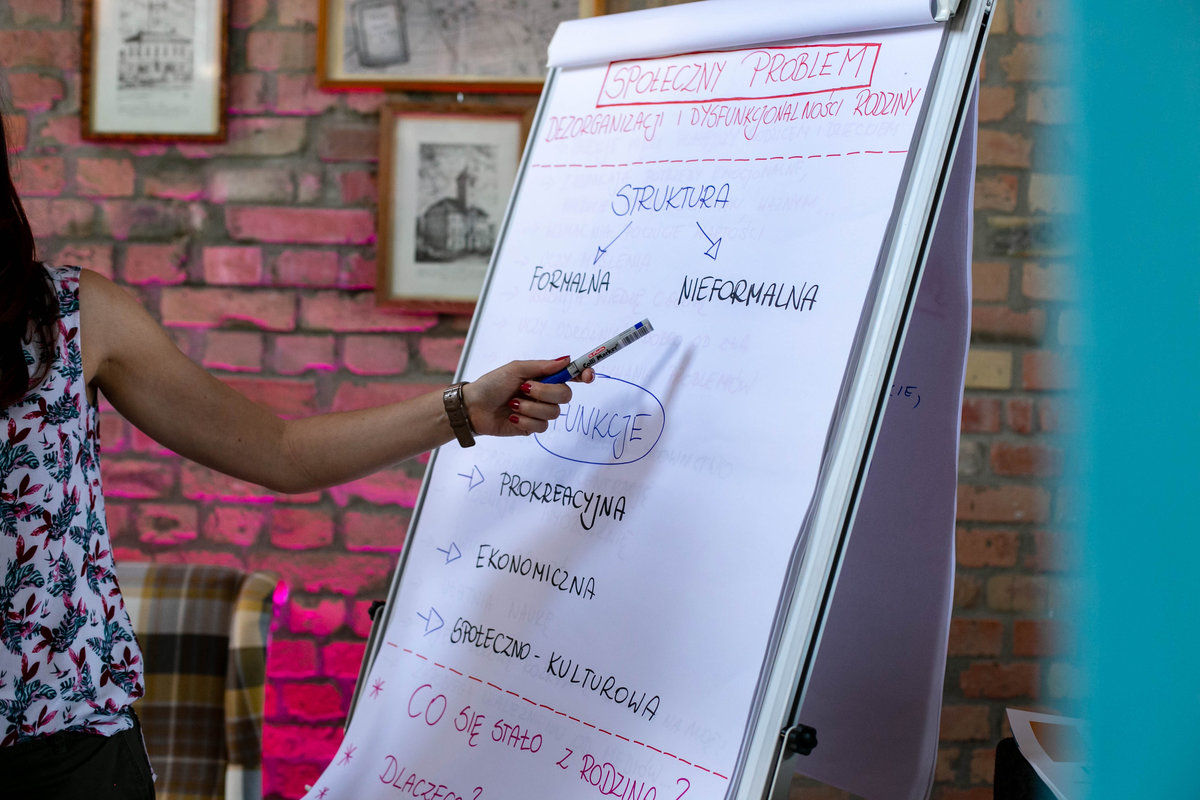 SPOŁECZNY PROBLEM
DEZORGANIZACJI I DYSFUNKCJONALNOŚCI RODZINY
STRUKTURA
FORMALNA
NIEFORMALNA
FUNKCJE
PROKREACYJNA
EKONOMICZNA
SPOŁECZNO-KULTUROWA
* CO SIĘ STAŁO Z RODZINĄ?
* DLACZEGO?
*